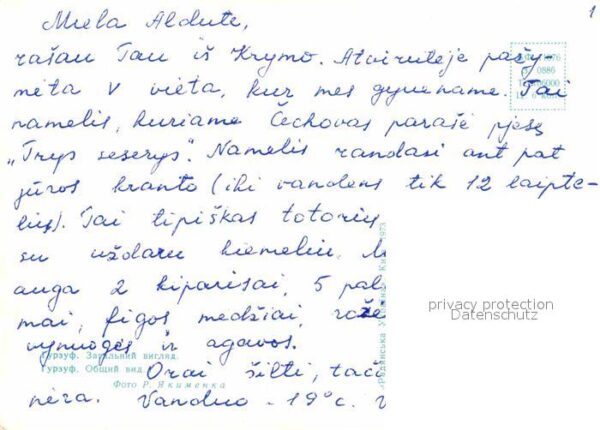 1
Miela Aldute,
rašau Tau iš Krymo. Atvirutėje pažy-
mėta V vieta, kur mes gyvename. Tai
namelis, kuriame Čechovas parašė pjesę
„Trys seserys“. Namelis randasi ant pat
jūros kranto (iki vandens tik 12 laipte-
lių). Tai tipiškas totorių
su uždaru kiemeliu.
auga 2 kiparisai, 5 pal
mai, figos medžiai, rože
vynuogės ir agavos.
Гурзуф. Загальний вигляд.
Гурзуф. Общий вид.
Фото Р. Якименка
Orai šilti, tači
nėra. Vanduo - 19°c.
privacy protection
Datenschutz